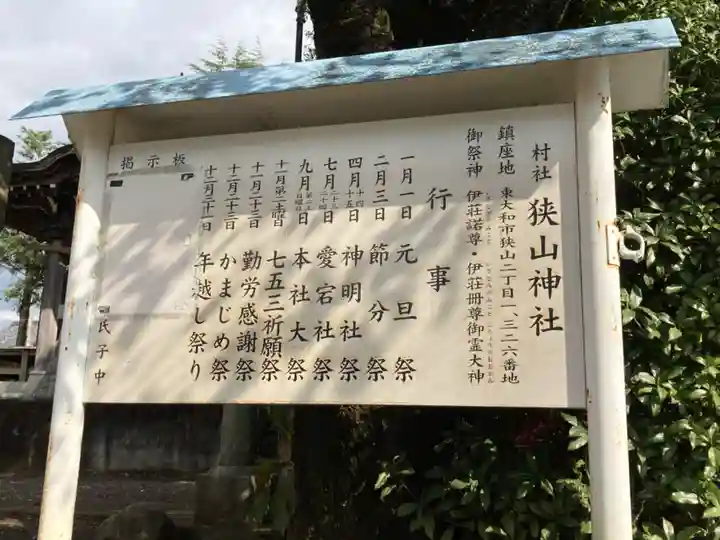 村社 狭山神社
鎮座地 東大和市狭山二丁目一、三二六番地
御祭神 伊荘諾尊・伊荘冊尊御霊大神
行事
一月一日 元旦祭
二月三日 節分祭
四月十四十五日 神明社祭
七月二十三二十四日 愛宕社祭
九月第二日曜日 本社大祭
十一月第二土曜日 七五三祈願祭
十一月二十三日 勤労感謝祭
十二月二十三日 かまじめ祭
十二月三十一日 年越し祭り
掲示板
氏子中